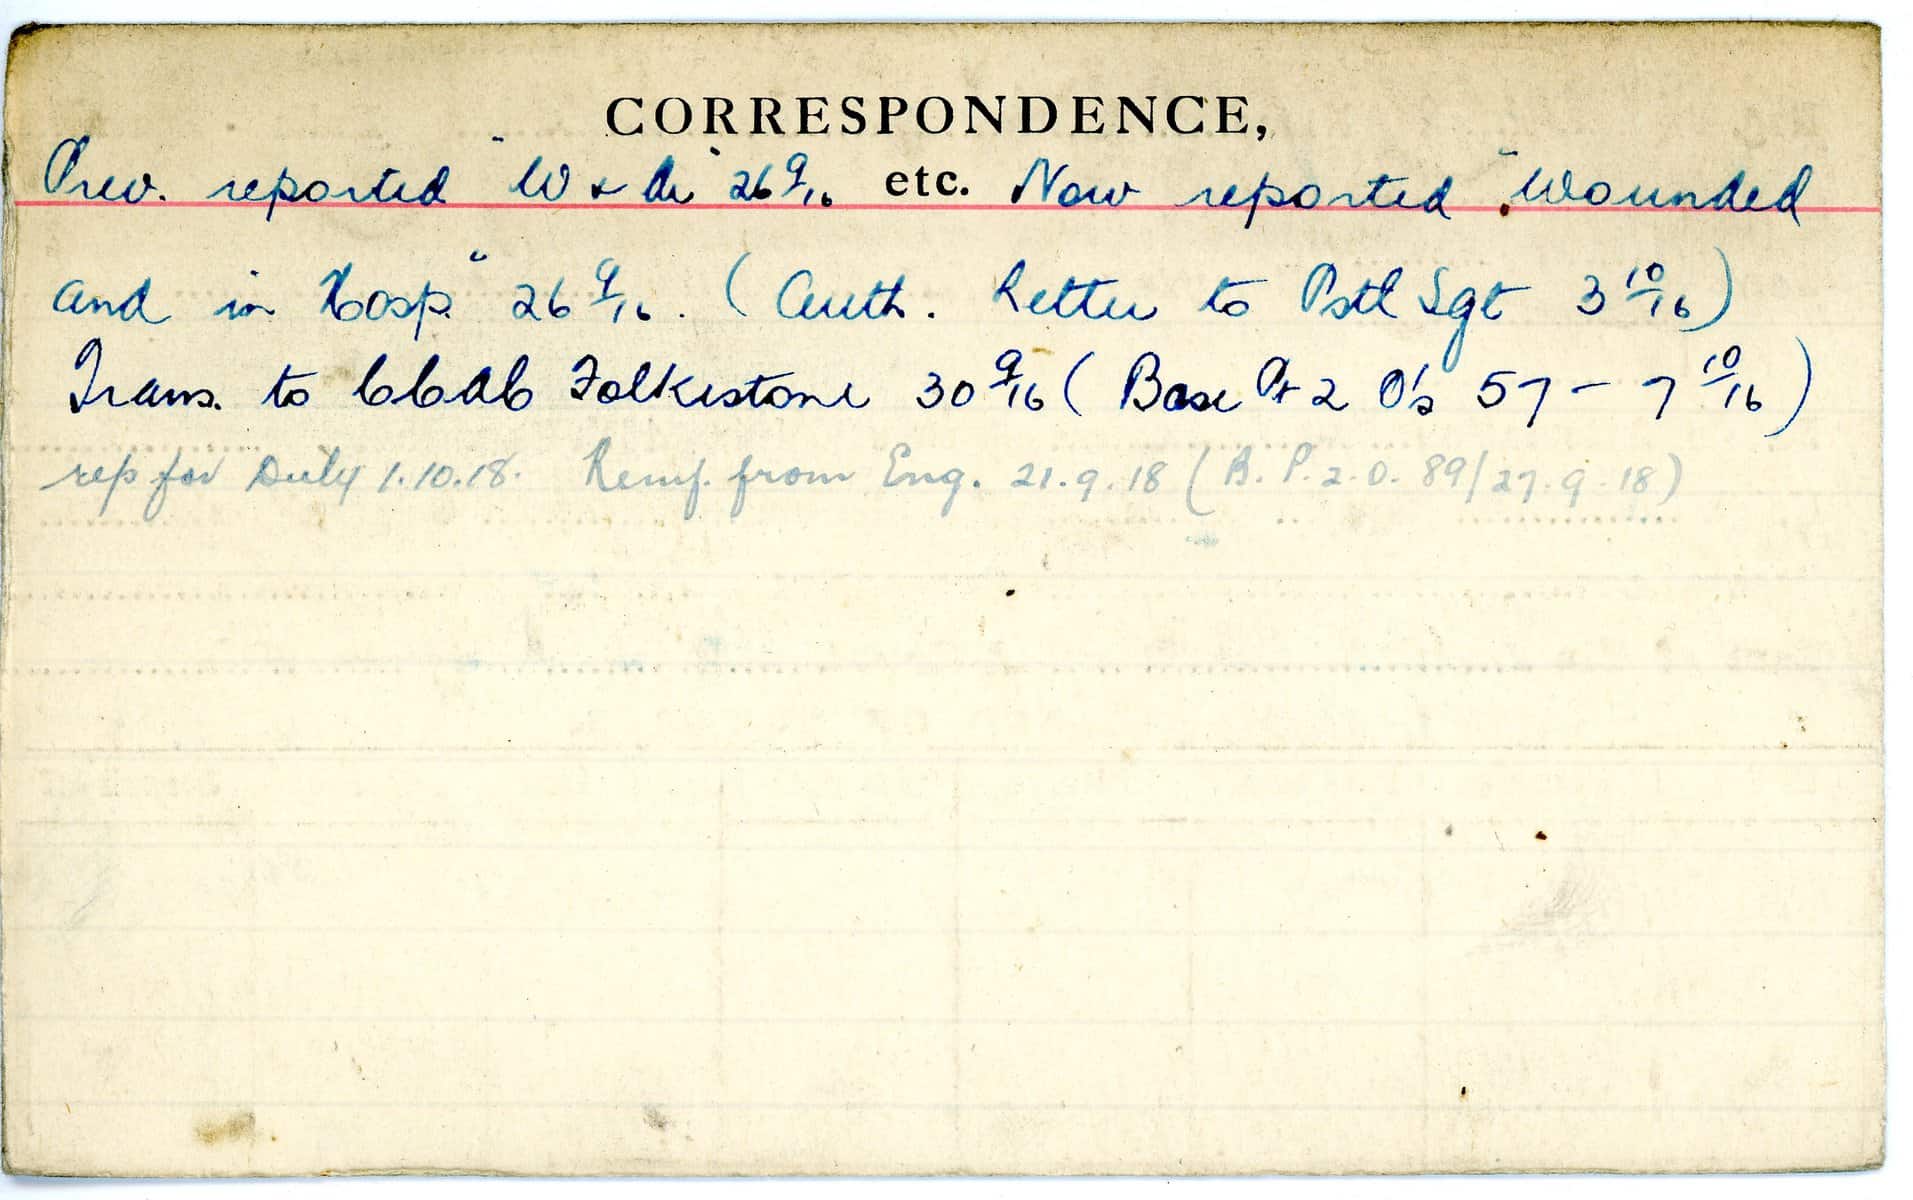 CORRESPONDENCE,
Prev. reported "W & M" 26 9/16 etc. Now reported "Wounded
and in Hosp." 26 9/16. (Auth. Letter to Pstl Sgt 3 10/16)
Trans. to CCAC Folkestone 30 9/16 (Base Pt 2 O's 57 - 7 10/16)
rep for Duty 1.10.18. Reinf. from Eng. 21.9.18 (B.P.2.O. 89/27.9.18)